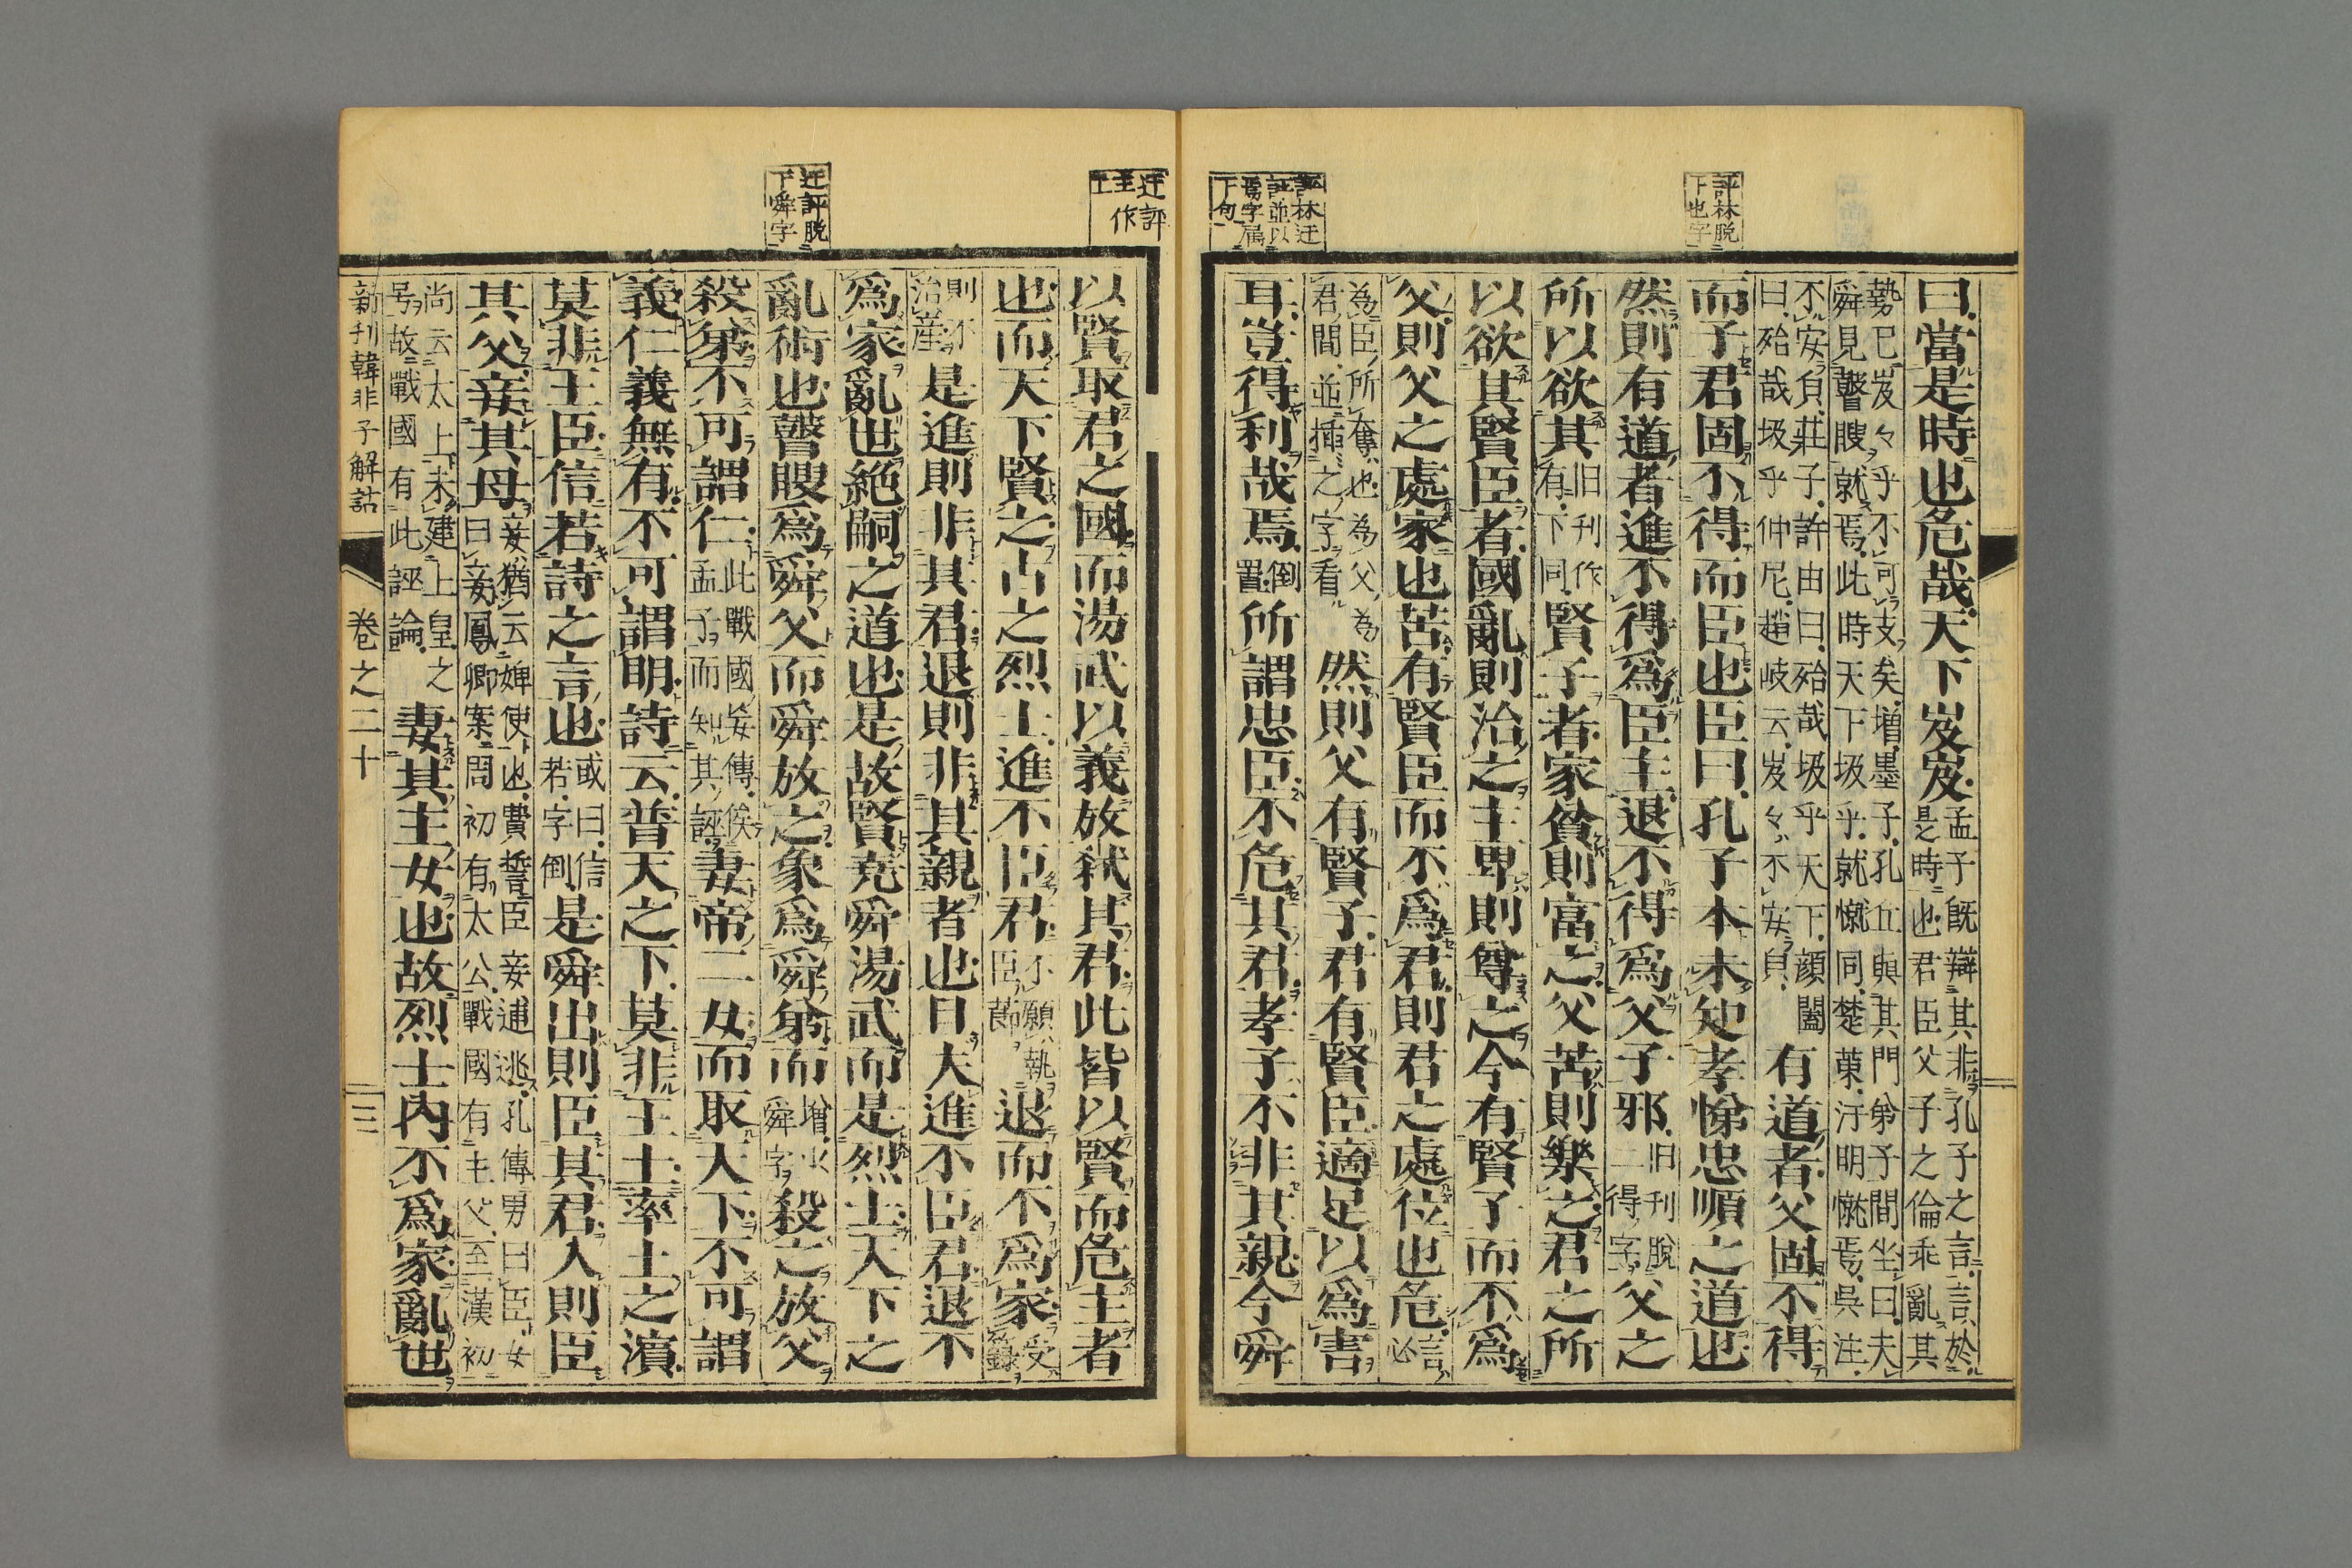 評林脱
下也字
評林迂
評並以
焉字属
下句
曰當是時也危哉天下岌岌孟子既辯其非孔子之言言於
是時也君臣父子之倫乖亂其
勢已岌々乎不可支矣増墨子孔丘與其門弟子間坐曰夫
舜見瞽瞍就焉此時天下圾乎就慨同楚蕇汙明慨焉呉注
不安皃莊子許由曰殆哉圾乎天下顔闔
曰殆哉圾乎仲尼趙岐云岌々不安皃有道者父固不得
而子君固不得而臣也臣曰孔子本未知孝悌忠順之道也
然則有道者進不得爲臣主退不得爲父子邪旧刊脱
二得字父之
所以欲其旧刊作
有下同賢子者家貧則富之父苦則樂之君之所
以欲其賢臣者國亂則治之主卑則尊之今有賢子而不爲
父則父之處家也苦有賢臣而不爲君則君之處位也危言
必
為臣所奪也為父為
君間並插之字看然則父有賢子君有賢臣適足以爲害
耳豈得利哉焉倒
置所謂忠臣不危其君孝子不非其親今舜
迂評
主作
土
迂評脱
下舜字
以賢取君之國而湯武以義放弑其君此皆以賢而危主者
也而天下賢之古之烈士進不臣君不願執
臣節退而不爲家受
禄
則不
治産是進則非其君退則非其親者也且夫進不臣君退不
爲家亂世絶嗣之道也是故賢堯舜湯武而是烈士天下之
亂術也瞽瞍爲舜父而舜放之象爲舜弟而増
舜字殺之放父
殺弟不可謂仁此戰國妄傳俟
孟子而知其誣妻帝二女而取天下不可謂
義仁義無有不可謂明詩云普天之下莫非王土率土之濱
莫非王臣信若詩之言也或曰信
若字倒是舜出則臣其君入則臣
其父妾其母妾猶云婢使也費誓臣妾逋逃孔傳男曰臣女
曰妾鳳卿案周初有太公戰國有主父至漢初
尚云太上未建上皇之
号故戰國有此誣論妻其主女也故烈士内不爲家亂世
新刊韓非子解詁 卷之二十 三